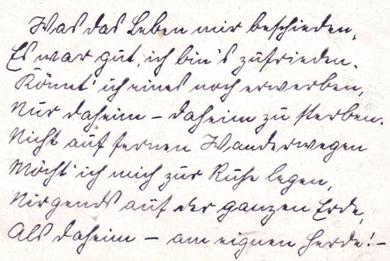 Was das Leben mir beschieden,
Es war gut, ich bin's zufrieden.
Könnt' ich eines noch erwerben,
Nur daheim – daheim zu sterben.
Nicht auf fernen Wanderwegen
Möcht' ich mich zur Ruhe legen,
Nirgends auf der ganzen Erde,
Als daheim – am eignen Herde! –